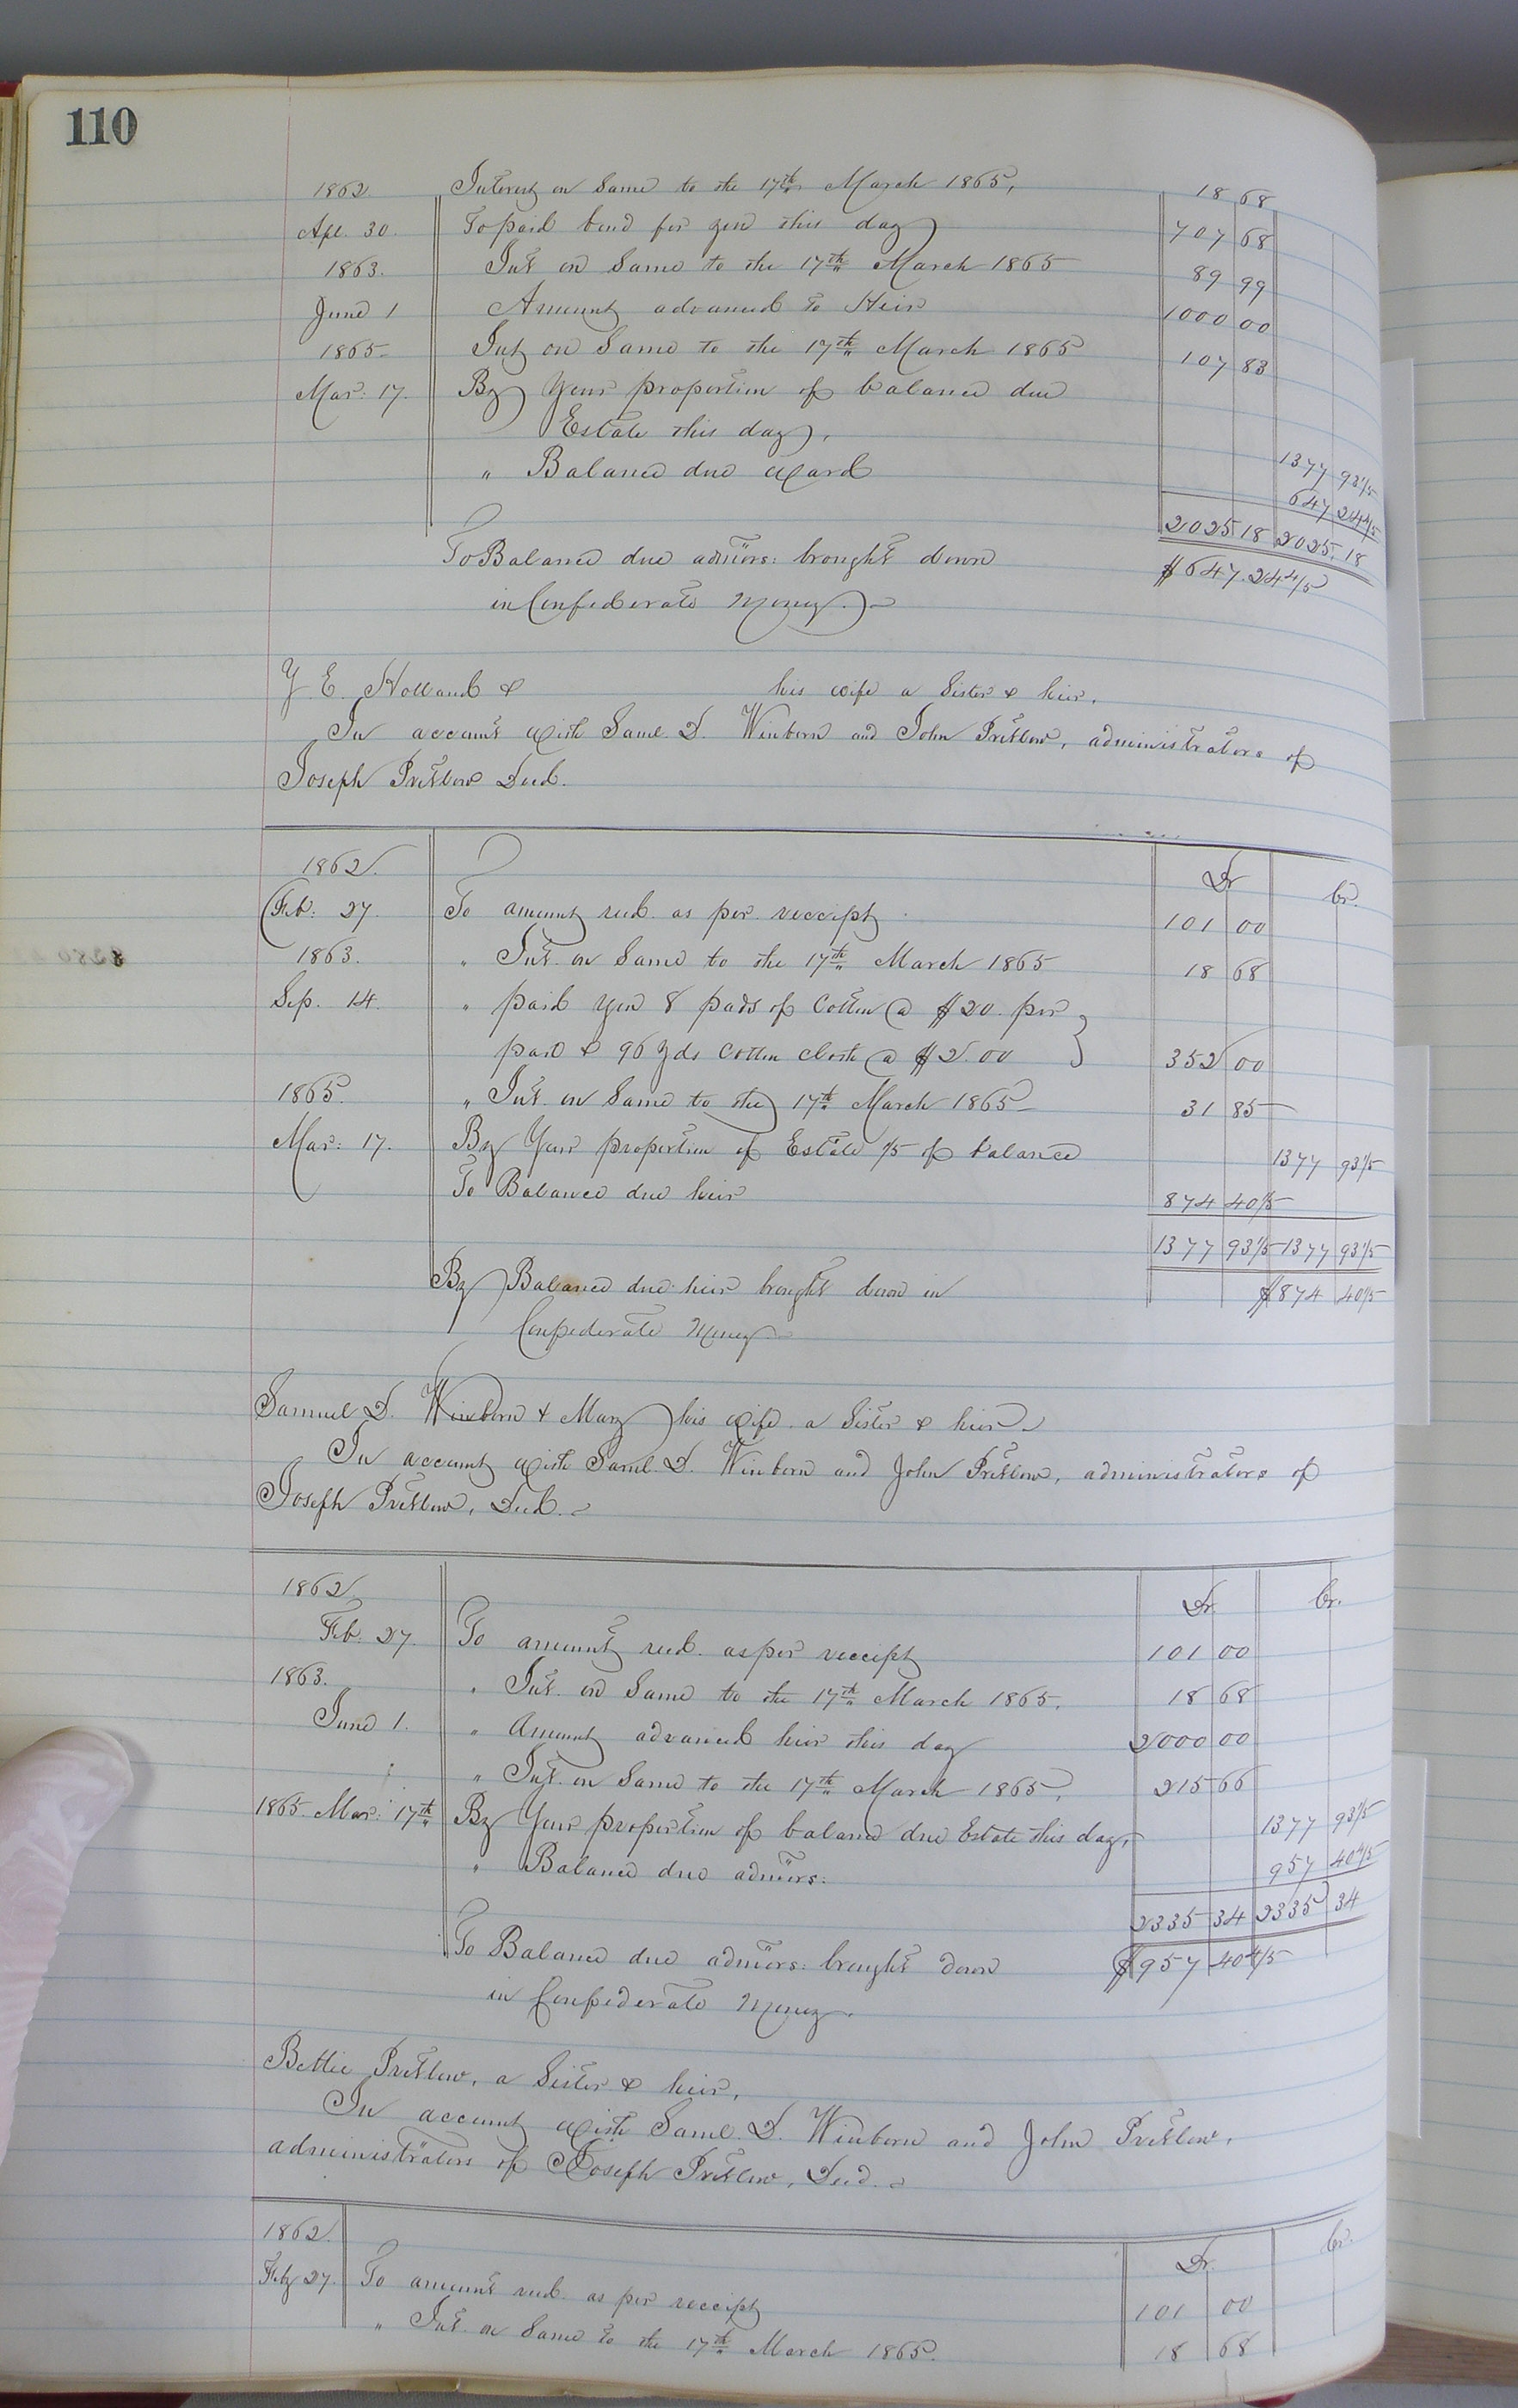 110
1862 Interest on Same to the 17th March 1865, 18 68
Apl. 30. To paid bond for you this day 707 68
1863. Int on Same to the 17th March 1865 89 99
June 1 Amount advanced to Heir 1000 00
1865 Int on Same to the 17th March 1865 107 83
Mar: 17. By Your proportion of balance due
Estate this day, 1377 93 1/5
" Balance due Ward 647 24 4/5
2025 18 2025. 18
To Balance due admors: brought down $647.24 4/5
in Confederate Money.
Y E. Holland & his wife a Sister & heir.
In account with Saml. D. Winborn and John Pretlow, administrators of
Joseph Pretlow Decd.
1862. Dr Cr.
Feb: 27. To amount recd. as per receipt 101 00
1863. " Int. on Same to the 17th March 1865 18 68
Sep. 14. " paid you 8 pads of Cotton @ $20. per
pad & 96 yds Cotton cloth @ $2.00 352 00
1865. " Int. on Same to the 17th March 1865 31 85
Mar: 17. By Your proportion of Estate 1/5 of balance 1377 93 1/5
To Balance due heir 874 40 1/5
1377 93 1/5 1377 93 1/5
By Balance due heir brought down in $874 40 1/5
Confederate Money
Samuel D. Winborn & Mary his wife a Sister & heir
In account with Saml. D. Winborn and John Pretlow, administrators of
Joseph Pretlow, Decd.
1862 Dr. Cr.
Feb. 27. To amount recd. as per receipt 101 00
1863. " Int. on Same to the 17th March 1865. 18 68
June 1. " Amount advanced heir this day 2000 00
" Int. on Same to the 17th March 1865, 215 66
1865. Mar: 17th By Your proportion of balance due Estate this day, 1377 93 1/5
" Balance due admors: 957 40 4/5
2335 34 2335 34
To Balance due admors: brought down $957 40 4/5
in Confederate Money.
Bettie Pretlow, a Sister & heir,
In account with Saml. D. Winborn and John Pretlow,
administrators of Joseph Pretlow, Decd.
1862. Dr. Cr.
Feby 27. To amount recd. as per receipt 101 00
" Int. on Same to the 17th March 1865. 18 68